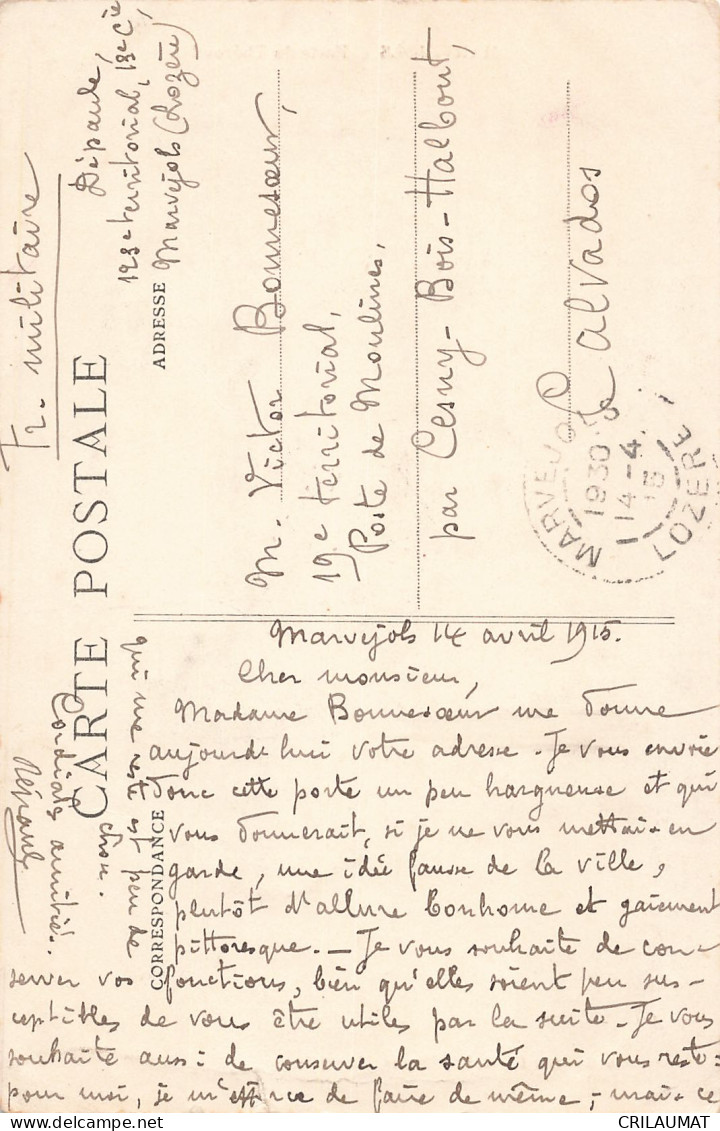 Fr. militaire
CARTE POSTALE
Dépaule,
123e territorial, 13e Cie
Marvejols (Lozère)
ADRESSE
M. Victor Bonnesœur,
19e territorial,
Poste de Moulines,
par Cesny-Bois-Halbout,
Calvados
MARVEJOLS
1930
14-4
15
LOZERE
CORRESPONDANCE
Marvejols 14 avril 1915.
Cher monsieur,
Madame Bonnesœur me donne
aujourd'hui votre adresse. Je vous envoie
donc cette porte un peu hargneuse et qui
vous donnerait, si je ne vous mettais en
garde, une idée fausse de la ville,
plutôt d'allure bonhome et gaiement
pittoresque. — Je vous souhaite de con-
server vos fonctions, bien qu'elles soient peu sus-
ceptibles de vous être utiles par la suite. Je vous
souhaite aussi de conserver la santé qui vous reste:
pour moi, je m'efforce de faire de même; mais ce
qui me reste est peu de
chose.
Cordiales amitiés.
Dépaule
CRILAUMAT